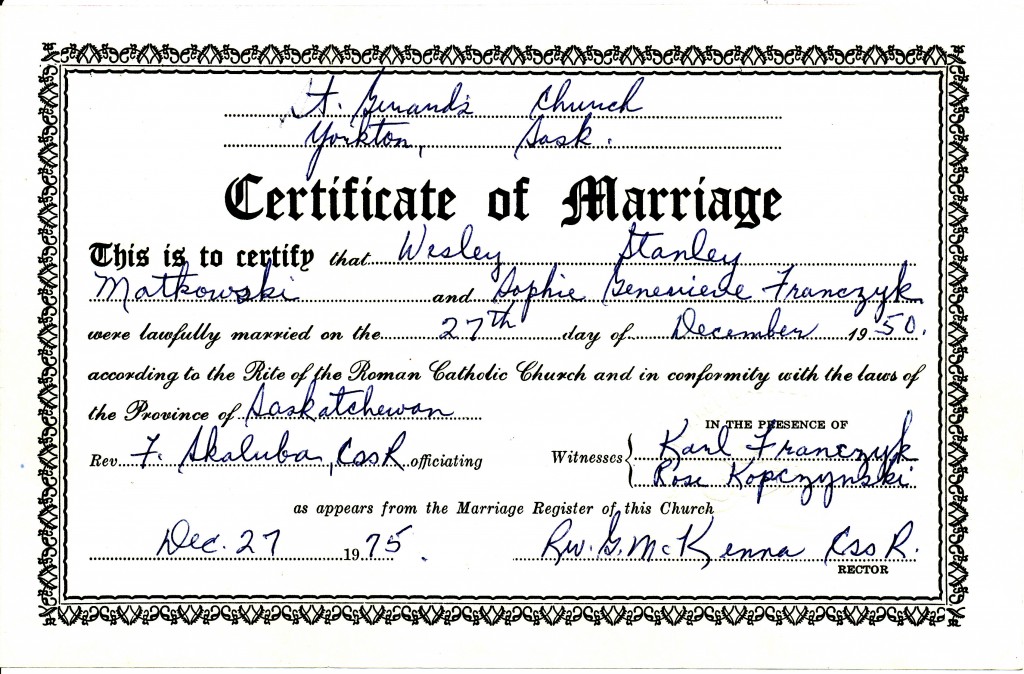 St. Gerard's Church
Yorkton, Sask.
Certificate of Marriage
This is to certify that Wesley Stanley
Matkowski and Sophie Genevieve Franczyk
were lawfully married on the 27th day of December 1950.
according to the Rite of the Roman Catholic Church and in conformity with the laws of
the Province of Saskatchewan
IN THE PRESENCE OF
Rev. F. Skaluba, CssR officiating Witnesses { Karl Franczyk
Rose Kopczynski
as appears from the Marriage Register of this Church
Dec. 27 1975. Rev. G. McKenna CssR.
RECTOR